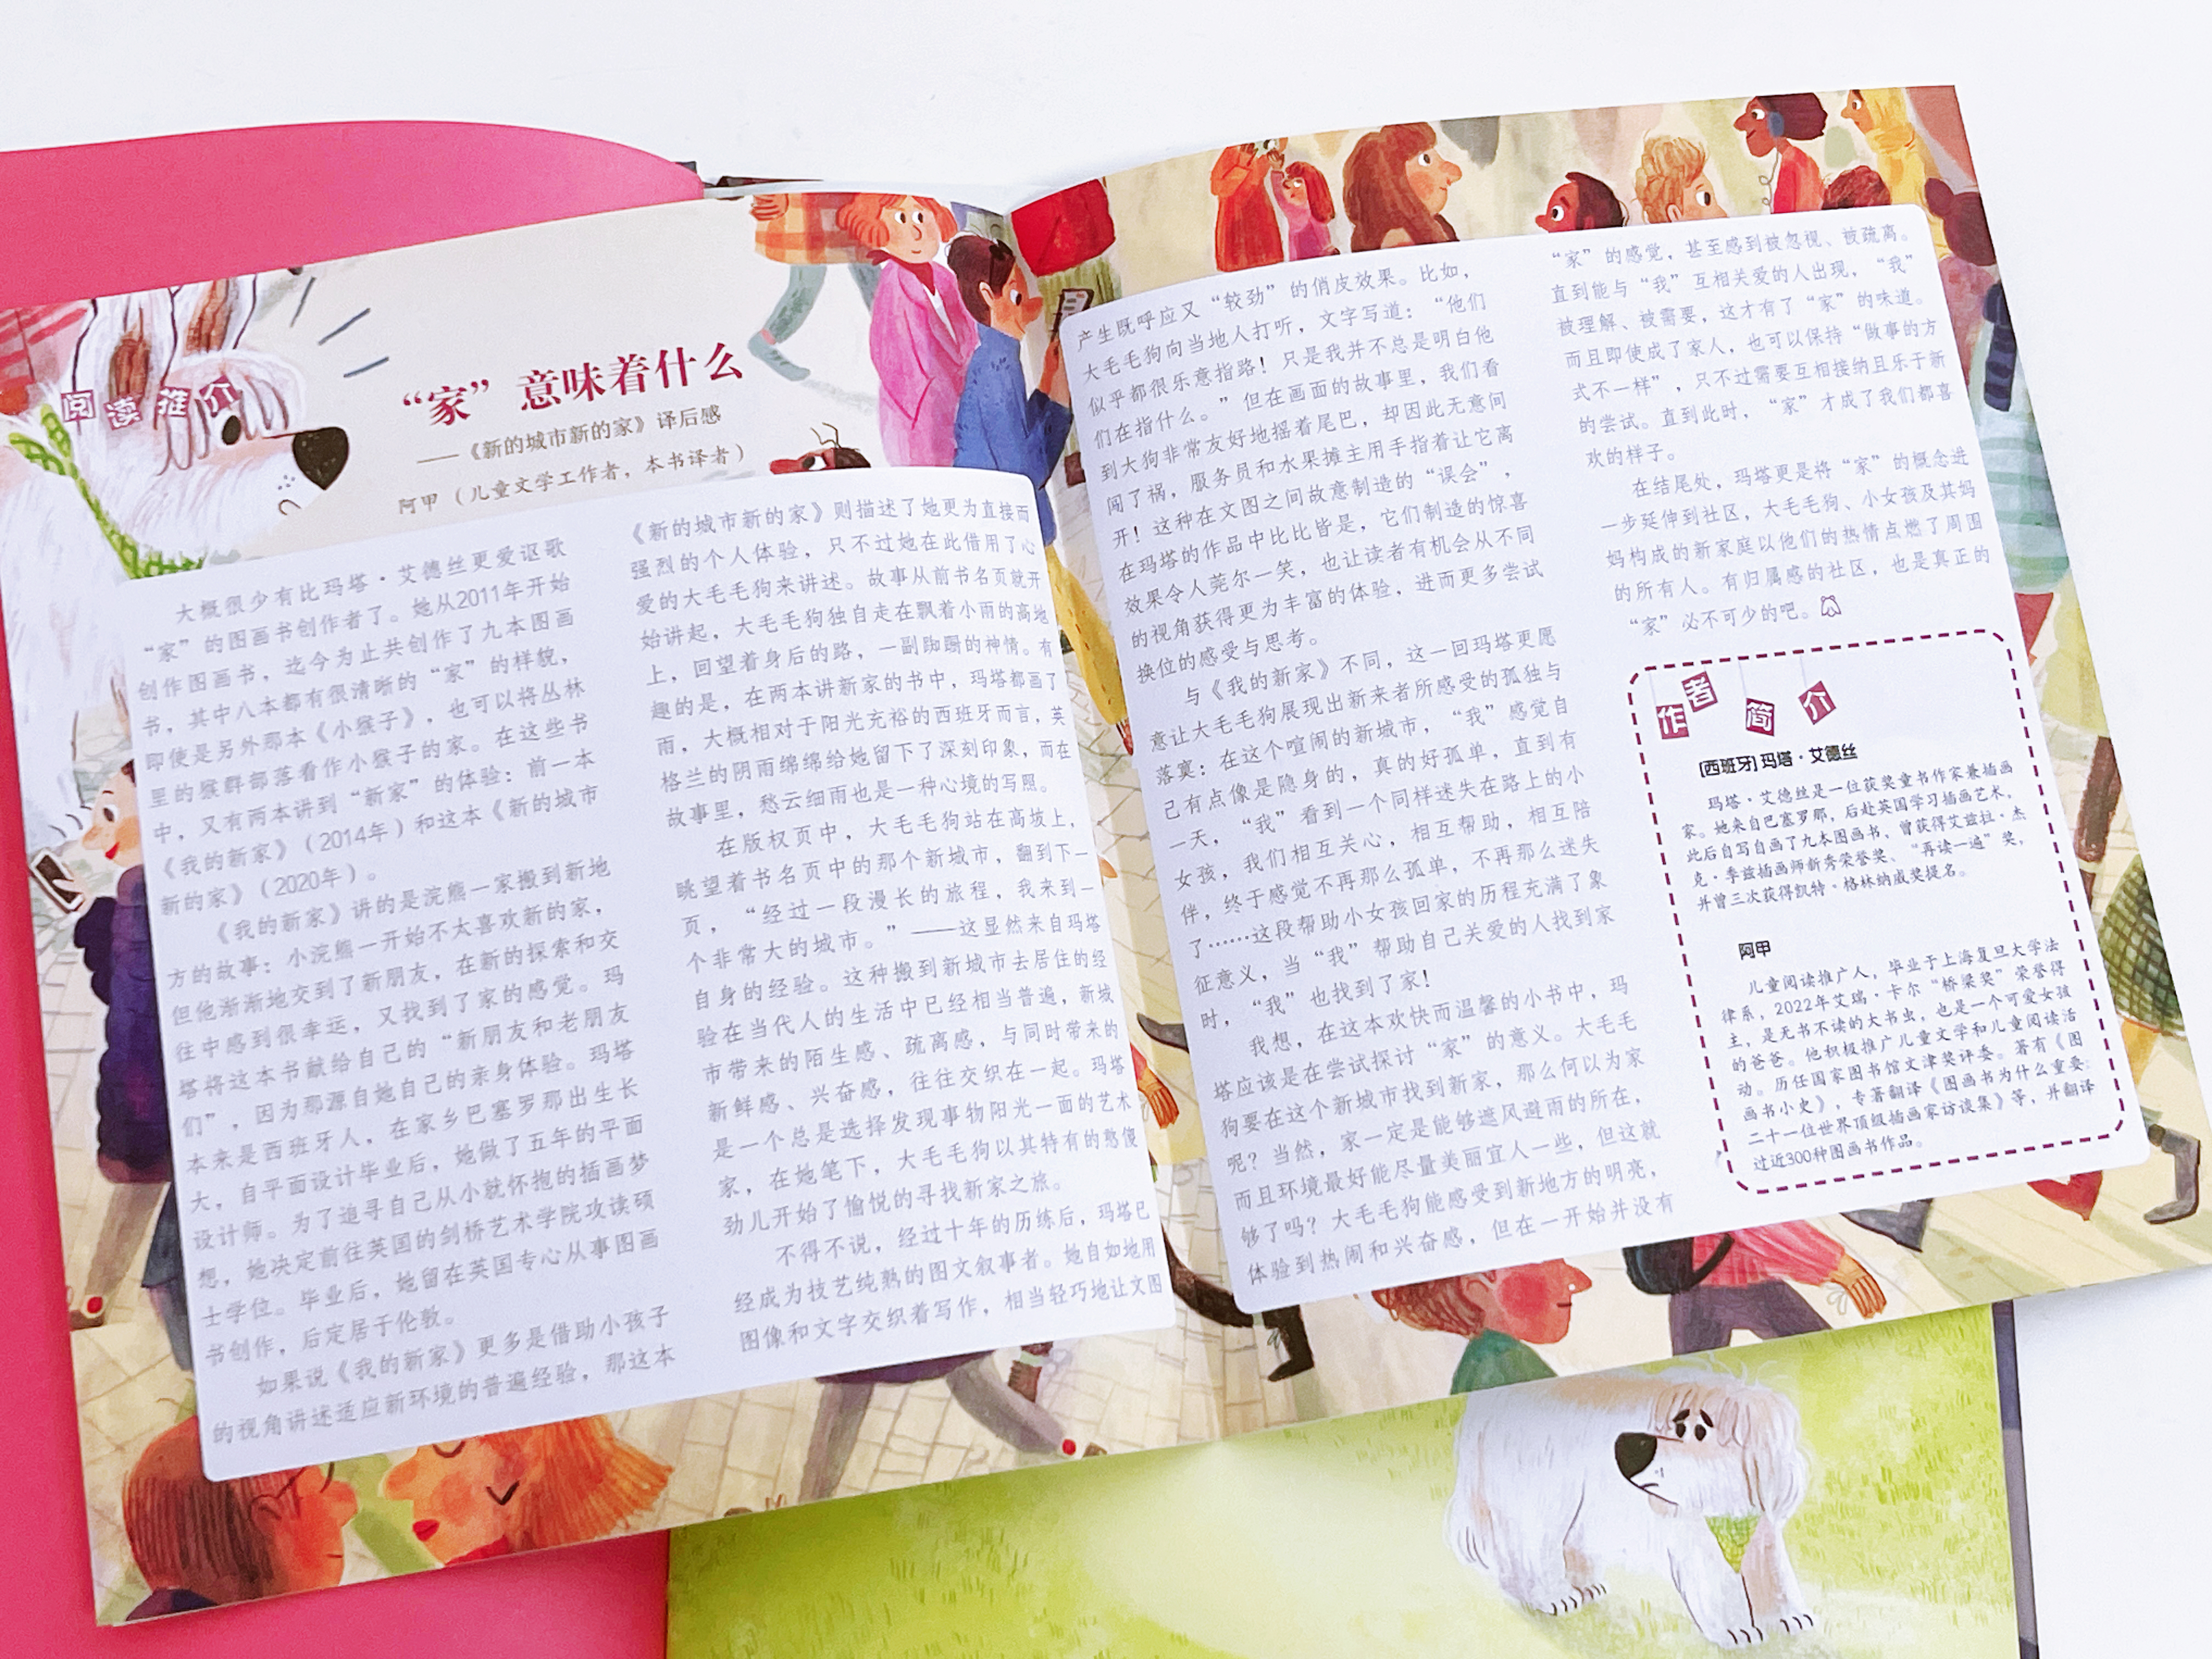 阅读推介
“家”意味着什么
——《新的城市新的家》译后感
阿甲（儿童文学工作者，本书译者）
大概很少有比玛塔·艾德丝更爱讴歌
“家”的图画书创作者了。她从2011年开始
创作图画书，迄今为止共创作了九本图画
书，其中八本都有很清晰的“家”的样貌，
即使是另外那本《小猴子》，也可以将丛林
里的猴群部落看作小猴子的家。在这些书
中，又有两本讲到“新家”的体验：前一本
《我的新家》（2014年）和这本《新的城市
新的家》（2020年）。
《我的新家》讲的是浣熊一家搬到新地
方的故事：小浣熊一开始不太喜欢新的家，
但他渐渐地交到了新朋友，在新的探索和交
往中感到很幸运，又找到了家的感觉。玛
塔将这本书献给自己的“新朋友和老朋友
们”，因为那源自她自己的亲身体验。玛塔
本来是西班牙人，在家乡巴塞罗那出生长
大，自平面设计毕业后，她做了五年的平面
设计师。为了追寻自己从小就怀抱的插画梦
想，她决定前往英国的剑桥艺术学院攻读硕
士学位。毕业后，她留在英国专心从事图画
书创作，后定居于伦敦。
如果说《我的新家》更多是借助小孩子
的视角讲述适应新环境的普遍经验，那这本
《新的城市新的家》则描述了她更为直接而
强烈的个人体验，只不过她在此借用了心
爱的大毛毛狗来讲述。故事从前书名页就开
始讲起，大毛毛狗独自走在飘着小雨的高地
上，回望着身后的路，一副踟蹰的神情。有
趣的是，在两本讲新家的书中，玛塔都画了
雨，大概相对于阳光充裕的西班牙而言，英
格兰的阴雨绵绵给她留下了深刻印象，而在
故事里，愁云细雨也是一种心境的写照。
在版权页中，大毛毛狗站在高坡上，
眺望着书名页中的那个新城市，翻到下一
页，“经过一段漫长的旅程，我来到一
个非常大的城市。”——这显然来自玛塔
自身的经验。这种搬到新城市去居住的经
验在当代人的生活中已经相当普遍，新城
市带来的陌生感、疏离感，与同时带来的
新鲜感、兴奋感，往往交织在一起。玛塔
是一个总是选择发现事物阳光一面的艺术
家，在她笔下，大毛毛狗以其特有的憨傻
劲儿开始了愉悦的寻找新家之旅。
不得不说，经过十年的历练后，玛塔已
经成为技艺纯熟的图文叙事者。她自如地用
图像和文字交织着写作，相当轻巧地让文图
产生既呼应又“较劲”的俏皮效果。比如，
大毛毛狗向当地人打听，文字写道：“他们
似乎都很乐意指路！只是我并不总是明白他
们在指什么。”但在画面的故事里，我们看
到大狗非常友好地摇着尾巴，却因此无意间
闯了祸，服务员和水果摊主用手指着让它离
开！这种在文图之间故意制造的“误会”，
在玛塔的作品中比比皆是，它们制造的惊喜
效果令人莞尔一笑，也让读者有机会从不同
的视角获得更为丰富的体验，进而更多尝试
换位的感受与思考。
与《我的新家》不同，这一回玛塔更愿
意让大毛毛狗展现出新来者所感受的孤独与
落寞：在这个喧闹的新城市，“我”感觉自
己有点像是隐身的，真的好孤单，直到有
一天，“我”看到一个同样迷失在路上的小
女孩，我们相互关心，相互帮助，相互陪
伴，终于感觉不再那么孤单，不再那么迷失
了……这段帮助小女孩回家的历程充满了象
征意义，当“我”帮助自己关爱的人找到家
时，“我”也找到了家！
我想，在这本欢快而温馨的小书中，玛
塔应该是在尝试探讨“家”的意义。大毛毛
狗要在这个新城市找到新家，那么何以为家
呢？当然，家一定是能够遮风避雨的所在，
而且环境最好能尽量美丽宜人一些，但这就
够了吗？大毛毛狗能感受到新地方的明亮，
体验到热闹和兴奋感，但在一开始并没有
“家”的感觉，甚至感到被忽视、被疏离。
直到能与“我”互相关爱的人出现，“我”
被理解、被需要，这才有了“家”的味道。
而且即使成了家人，也可以保持“做事的方
式不一样”，只不过需要互相接纳且乐于新
的尝试。直到此时，“家”才成了我们都喜
欢的样子。
在结尾处，玛塔更是将“家”的概念进
一步延伸到社区，大毛毛狗、小女孩及其妈
妈构成的新家庭以他们的热情点燃了周围
的所有人。有归属感的社区，也是真正的
“家”必不可少的吧。
作者简介
[西班牙]玛塔·艾德丝
玛塔·艾德丝是一位获奖童书作家兼插画
家。她来自巴塞罗那，后赴英国学习插画艺术，
此后自写自画了九本图画书，曾获得艾兹拉·杰
克·季兹插画师新秀荣誉奖、“再读一遍”奖，
并曾三次获得凯特·格林纳威奖提名。
阿甲
儿童阅读推广人，毕业于上海复旦大学法
律系，2022年艾瑞·卡尔“桥梁奖”荣誉得
主，是无书不读的大书虫，也是一个可爱女孩
的爸爸。他积极推广儿童文学和儿童阅读活
动。历任国家图书馆文津奖评委。著有《图
画书小史》，专著翻译《图画书为什么重要：
二十一位世界顶级插画家访谈集》等，并翻译
过近300种图画书作品。